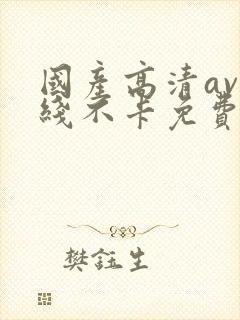 國產高清av
綫不卡免費
樊鈺生